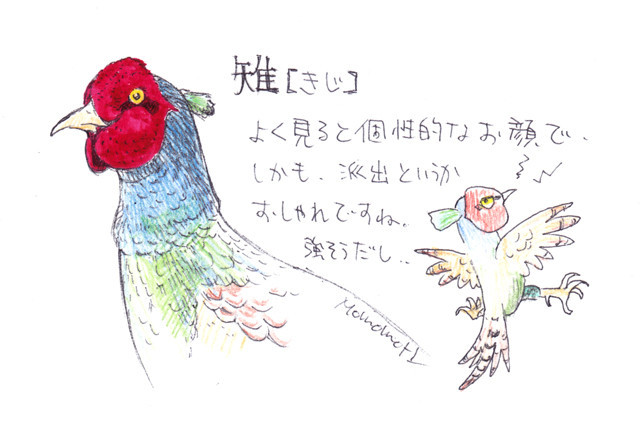 雉［きじ］
よく見ると個性的なお顔で、
しかも、派出というか
おしゃれですね。
強そうだし..